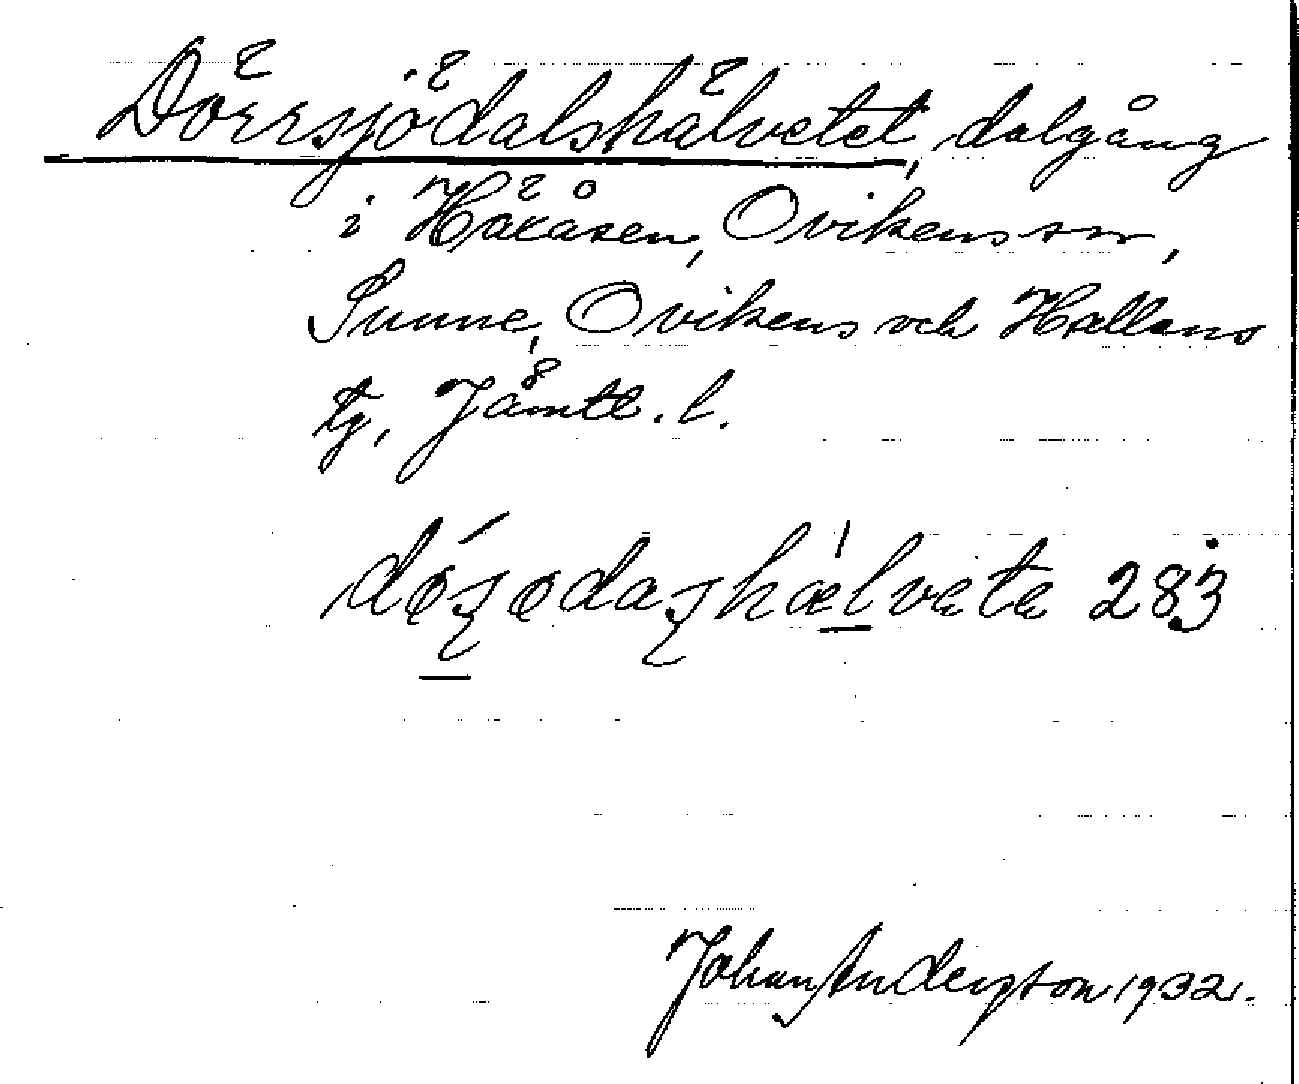 Dörrsjödalshälvetet, dalgång
i Häråsen, Ovikens sn,
Sunne, Ovikens och Hallens
tg, Jämtl. l.
283
Johan Anderson 1932.